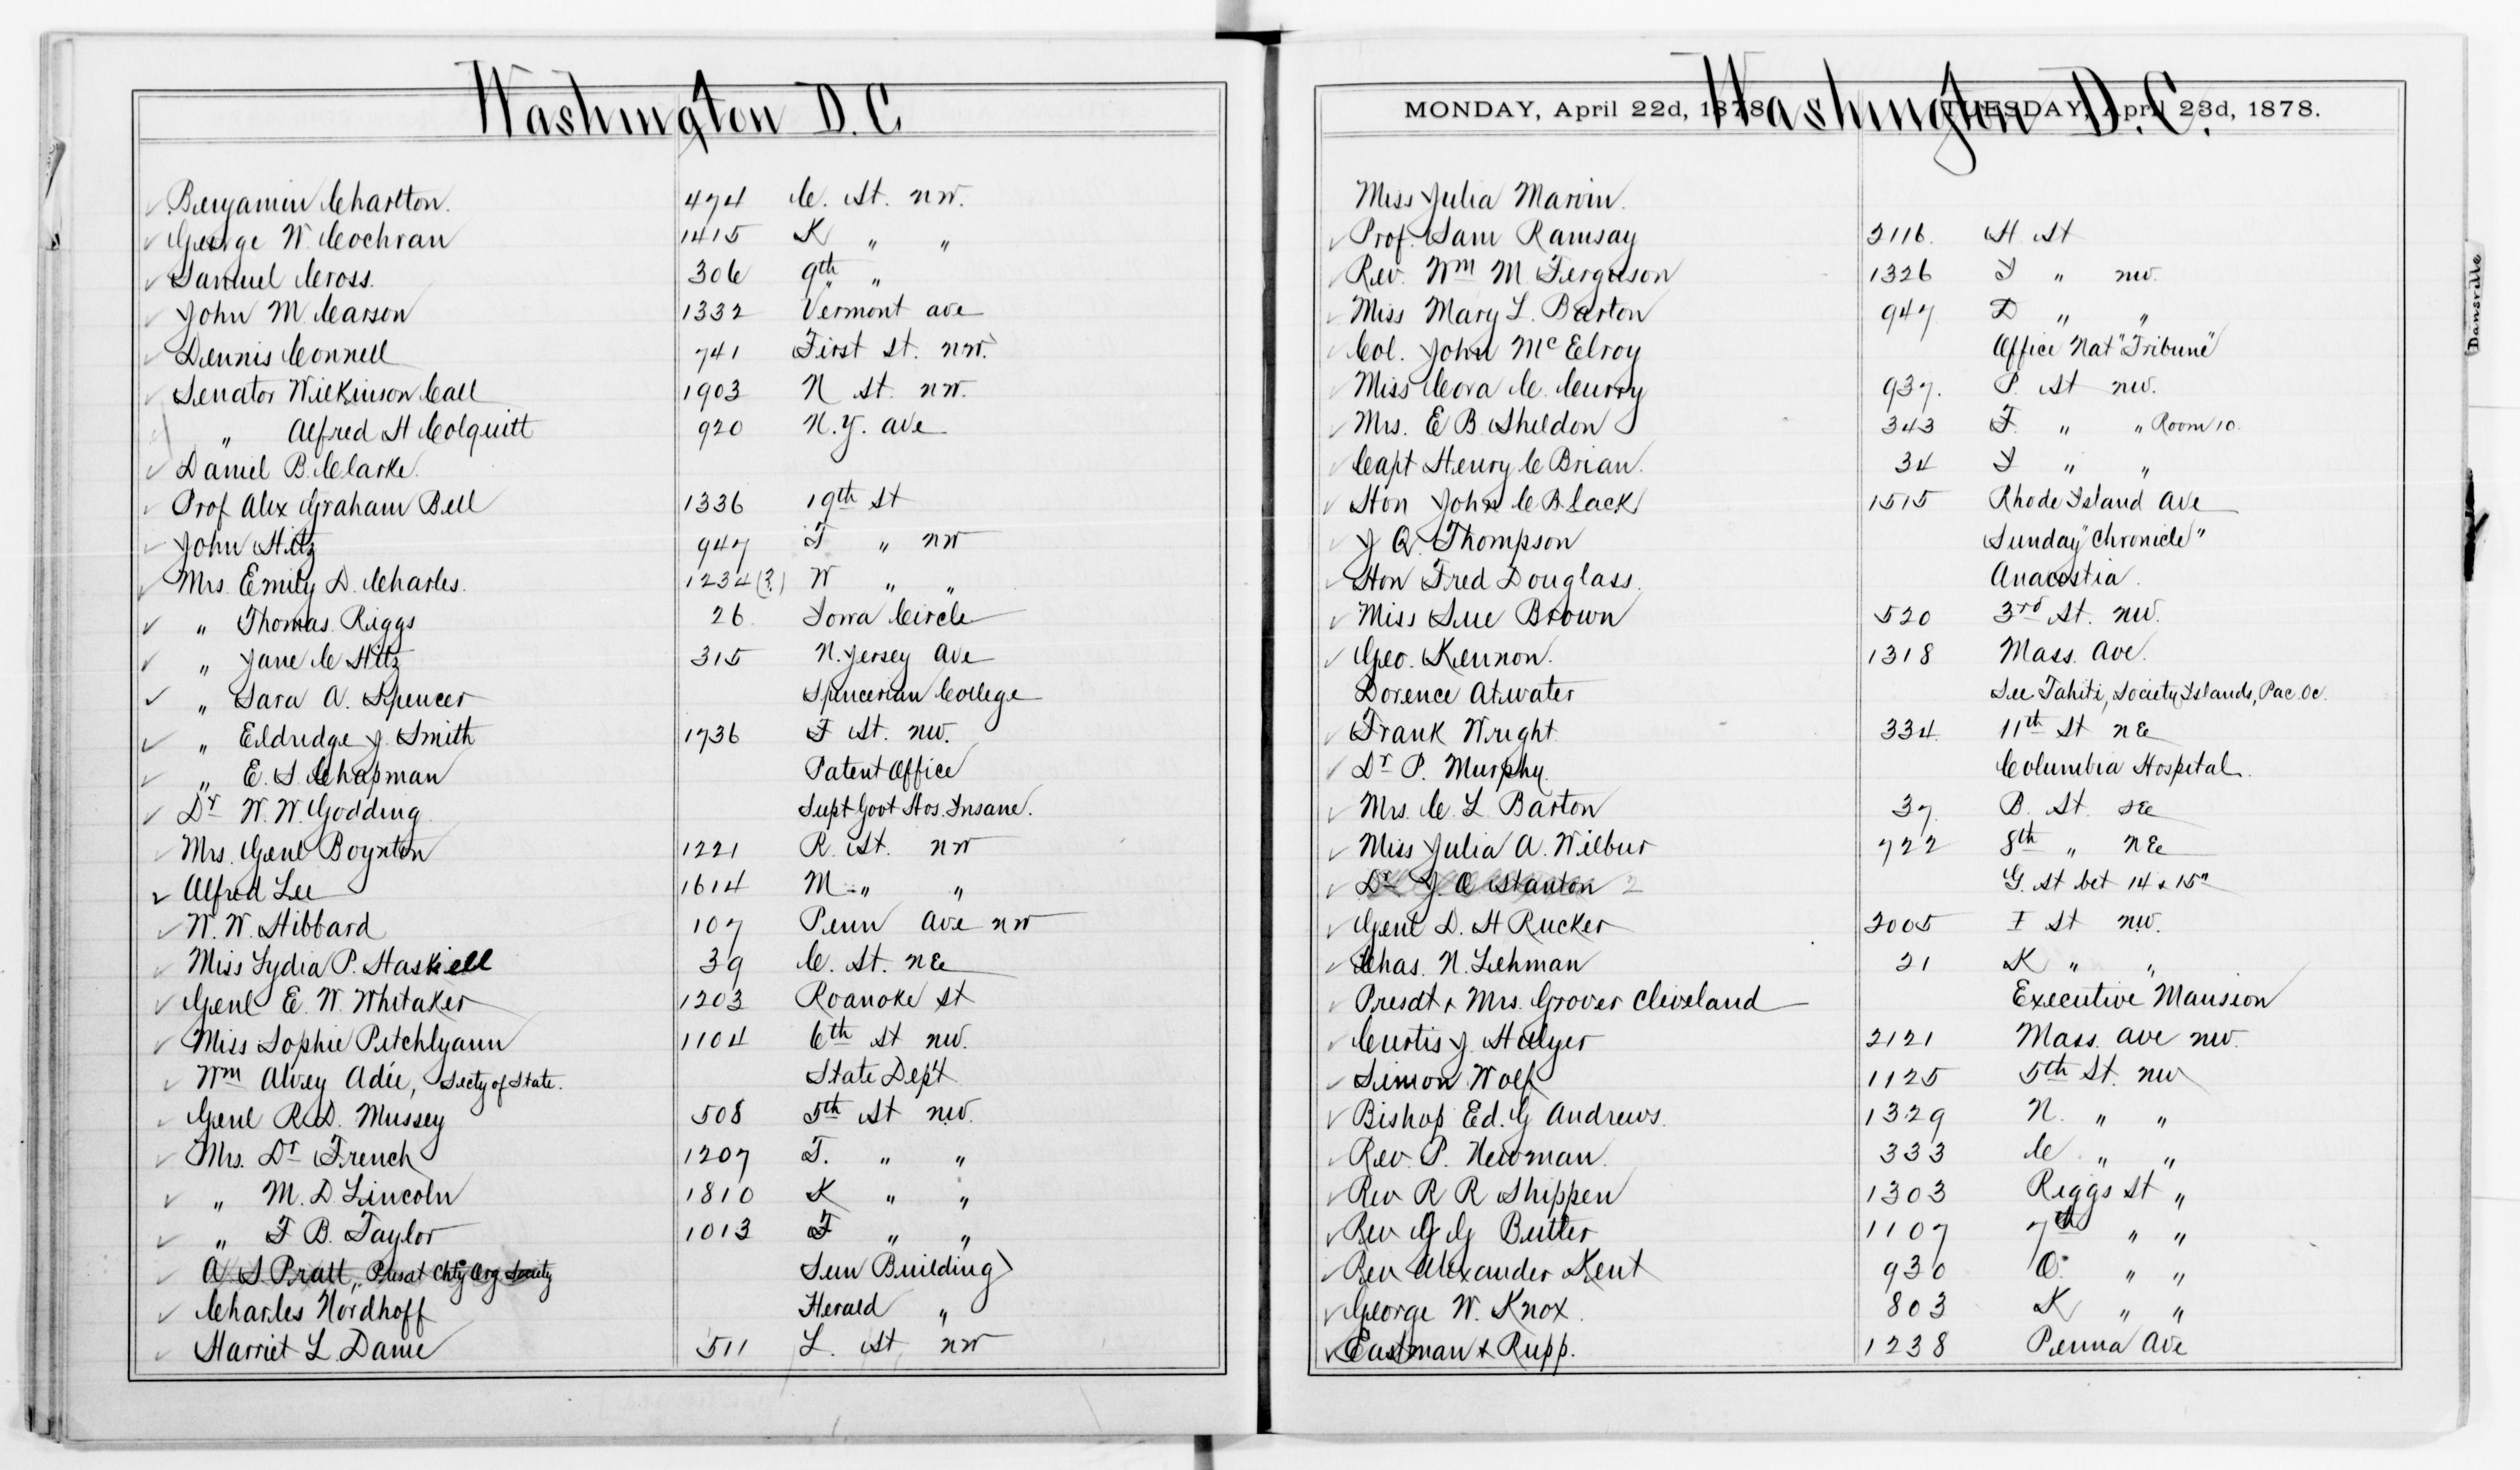 Washington D.C
✓ Benjamin Charlton. 474 C. St. nw.
✓ George W. Cochran 1415 K " "
✓ Samuel Cross. 306 9th " "
✓ John M. Carson 1332 Vermont ave
✓ Dennis Connell 741 First St. nw.
✓ Senator Wilkinson Call 1903 N St. nw.
" Alfred H Colquitt 920 N.Y. ave
✓ Daniel B. Clarke.
✓ Prof Alex Graham Bell 1336 19th St
✓ John Hitz 947 T " nw
✓ Mrs. Emily D. Charles. 1234(?) W " "
✓ " Thomas Riggs 26 Iowa Circle
✓ " Jane C Hitz 315 N. Jersey Ave
✓ " Sara A. Spencer Spencerian College
✓ " Eldredge J. Smith 1736 F St. nw.
✓ " E. S. Chapman Patent Office
✓ Dr W. W. Godding Supt Govt Hos. Insane.
✓ Mrs. Genl Boynton 1221 R. St. nw
✓ Alfred Lee 1614 M " "
✓ W. W. Hibbard 107 Penn Ave nw
✓ Miss Lydia P. Haskell 39 C. St. NE
✓ Genl E. W. Whitaker 1203 Roanoke St
✓ Miss Sophie Pitchlyann 1104 6th St nw.
✓ Wm Alvey Adée, Secty of State. State Dep't
✓ Genl R.D. Mussey 508 5th St nw.
✓ Mrs. Dr French 1207 T. " "
✓ " M. D. Lincoln 1810 K " "
✓ " F B. Taylor 1013 F " "
✓ A. S Pratt, Presdt Chty Org Society Sun Building
✓ Charles Nordhoff Herald "
✓ Harriet L. Dame 511 L. St nw
MONDAY, April 22d, 1878. TUESDAY, April 23d, 1878.
Washington D.C.
Miss Julia Marvin.
✓ Prof. Sam Ramsay 2116. H St
✓ Rev. Wm M. Ferguson 1326 I " nw.
✓ Miss Mary L. Barton 947 D " "
✓ Col. John McElroy Office Nat "Tribune"
✓ Miss Cora C. Curry 937. P. St nw.
✓ Mrs. E B. Sheldon 343 F. " " Room 10.
✓ Capt Henry C Brian. 34 I " "
✓ Hon John C Black 1515 Rhode Island Ave
✓ J Q. Thompson Sunday "Chronicle"
✓ Hon Fred Douglass. Anacostia.
✓ Miss Sue Brown 520 3rd St. nw.
✓ Geo. Kennon. 1318 Mass. Ave.
Dorence Atwater See Tahiti, Society Islands, Pac. Oc.
✓ Frank Wright 334 11th St NE
✓ Dr P. Murphy. Columbia Hospital.
✓ Mrs. C. L. Barton 37 B. St. SE
✓ Miss Julia A. Wilbur 722 8th " NE
✓ Dr J. O Stanton 2 G. St bet 14 & 15"
✓ Genl D. H Rucker 2005 I St nw.
✓ Chas. N. Lehman 21 K " "
✓ Presdt & Mrs. Grover Cleveland Executive Mansion
✓ Curtis J. Hillyer 2121 Mass. ave nw.
✓ Simon Wolf 1125 5th St. nw
✓ Bishop Ed. G Andrews. 1329 N. " "
✓ Rev. P. Newman. 333 C " "
✓ Rev R R Shippen 1303 Riggs St "
✓ Rev G G Butler 1107 7th " "
✓ Rev Alexander Kent 930 O. " "
✓ George W. Knox. 803 K " "
✓ Eastman & Rupp. 1238 Penna Ave
Dansville